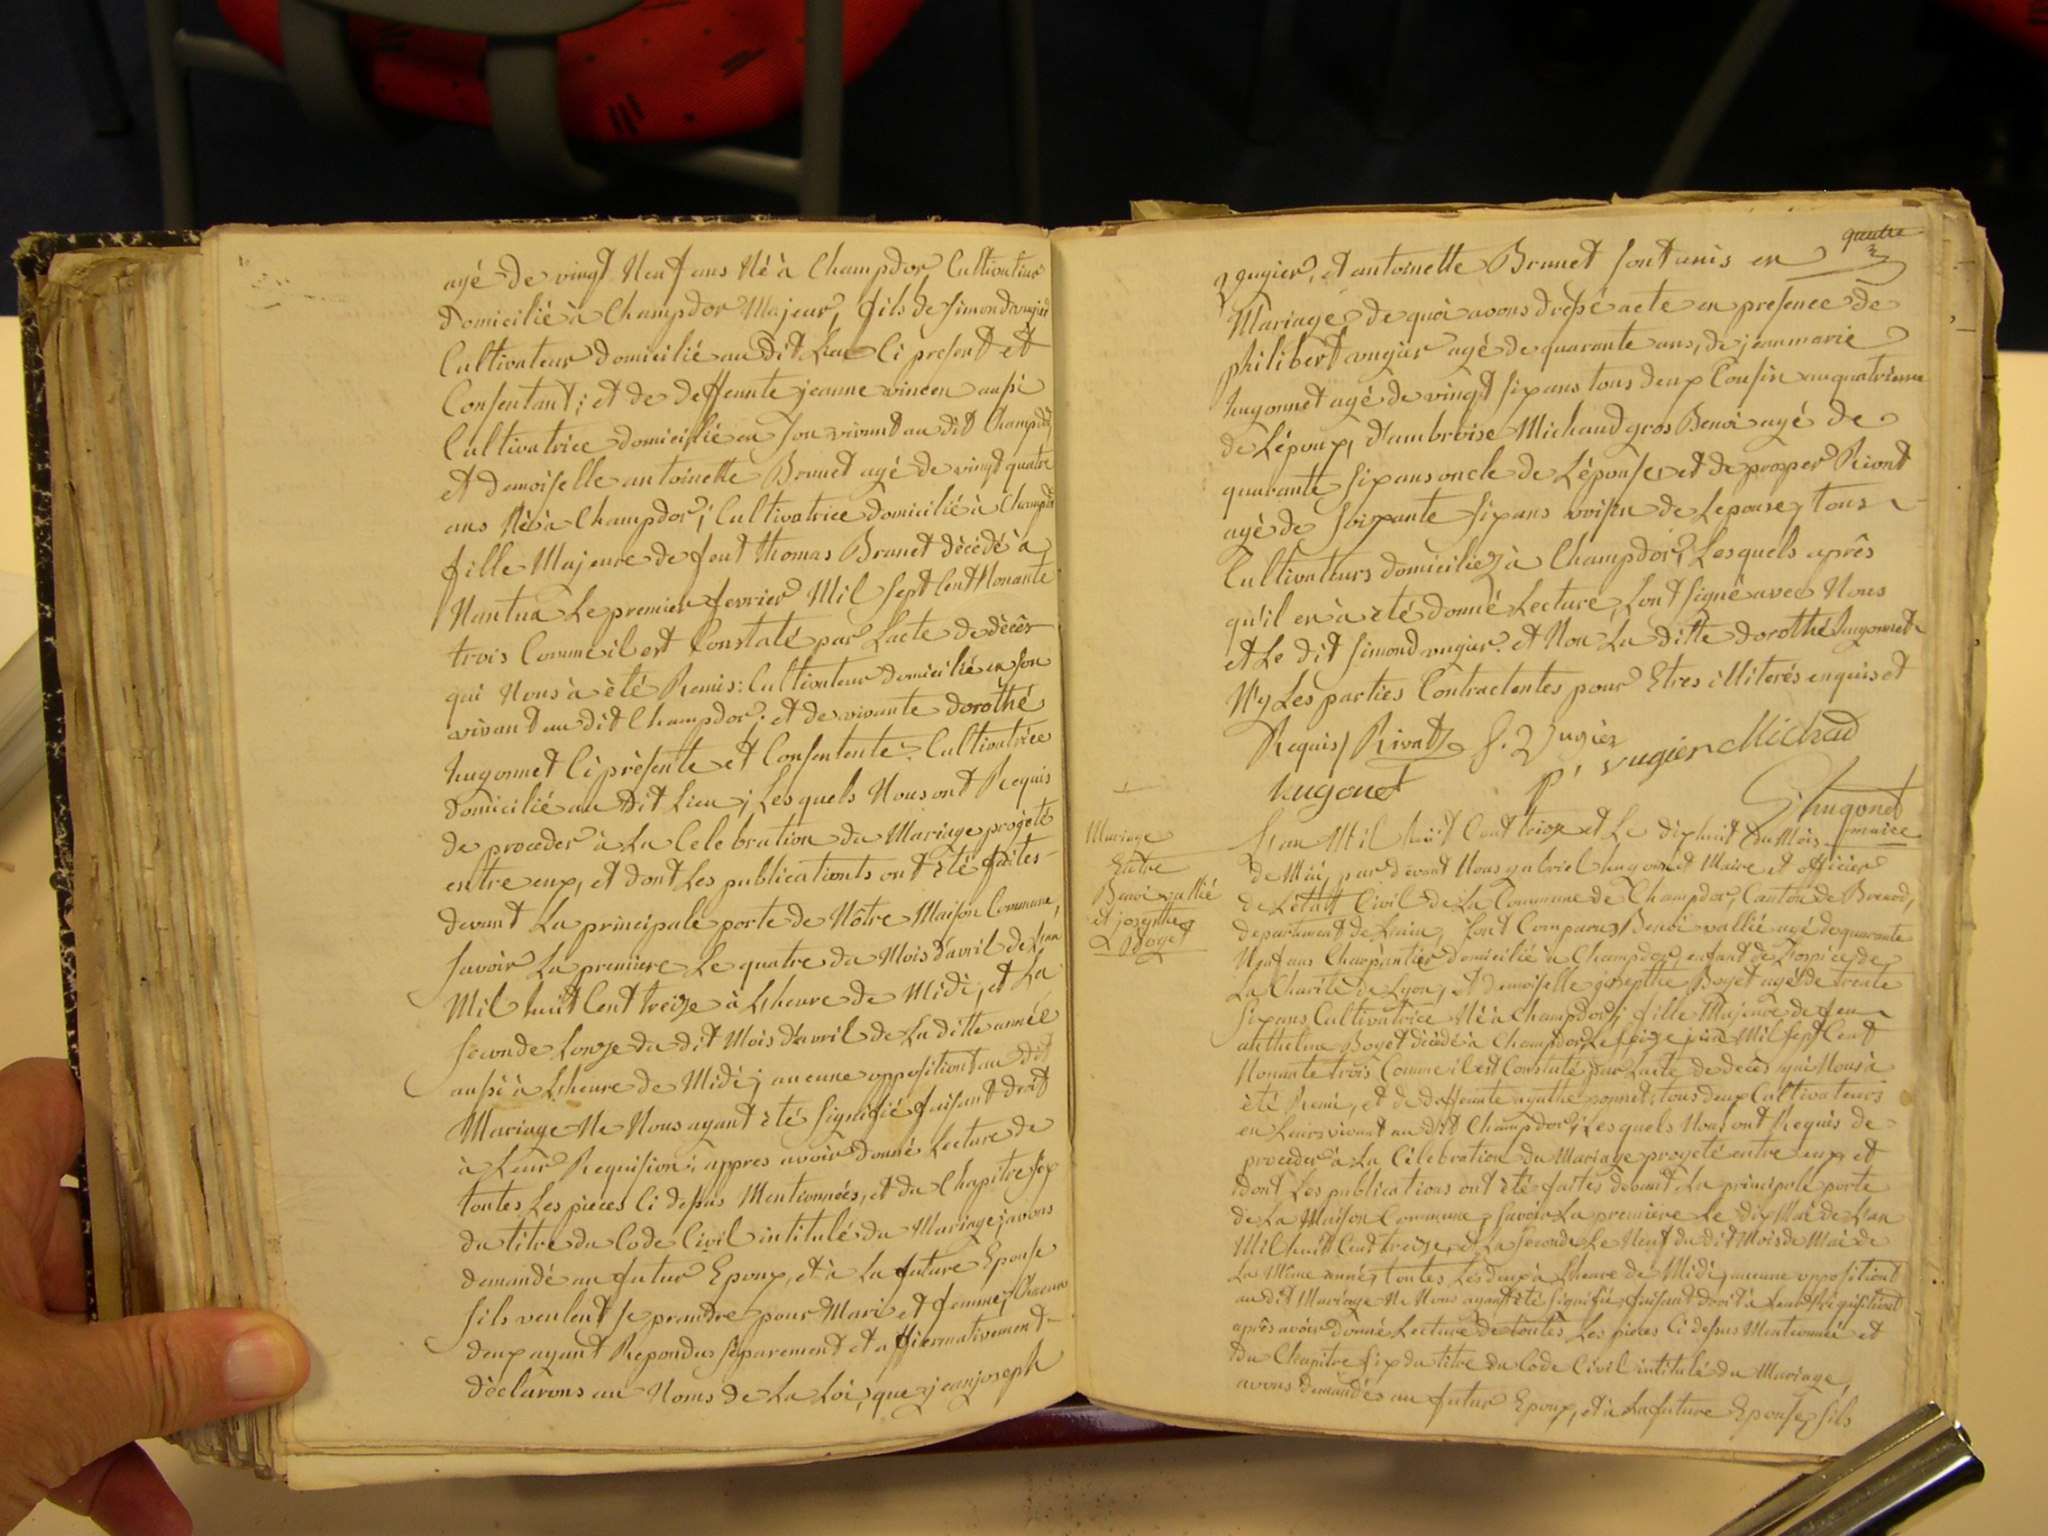 agé de vingt Neuf ans Né à Champdor, Cultivateur
Domicilié à Champdor Majeur, fils de simond vugier
Cultivateur Domicilié au Dit Lieu Ci present et
Consentant; et de deffeunte jeanne vincen aussi
Cultivatrice domicilié en son vivant au dit Champdor
et demoiselle antoinette Brunet agé de vingt quatre
ans Né à Champdor, Cultivatrice domicilié à Champdor
fille Majeure de feut thomas Brunet décédé à
Nantua Le premier fevrier Mil sept Cent Nonante
trois Comme il est Constaté par Lacte de décès
qui Nous à été Remis: Cultivateur domicilié en son
vivant au dit Champdor; et de vivante dorothé
hugonnet Ci présente et Consentente: Cultivatrice
domicilié au dit Lieu; Lesquels Nous ont Requis
de proceder à La Celebration du Mariage projeté
entre eux, et dont Les publicationts ont été faites
devant La principale porte de Nôtre Maison Commune,
savoir La premiere Le quatre du Mois d'avril de L'an
Mil huit Cent treize à Lheure de Midi, et La
seconde Lonze du dit Mois d'avril de La ditte année
aussi à Lheure de Midi; aucune oppositiont au dit
Mariage Ne Nous ayant été signifié faisant droit
à Leur Requision; appres avoir donné Lecture de
toutes Les pieces Ci dessus Mentionnées, et du Chapitre six
du titre du Code Civil intitulé du Mariage; avons
demandé au futur Epoux, et à La future Epouse
sils veulent se prendre pour Mari et femme; Chacun
deux ayant Repondus séparement et affiermativement
déclarons au Noms de La Loi, que jean joseph
quatre
vugier, et antoinette Brunet sont unis en
Mariage de quoi avons dressé acte en presence de
philibert vugier agé de quarante ans, de jean marie
hugonnet agé de vingt six ans tous deux Cousin au quatrieme
de Lépoux, d'ambroise Michaud gros Benoi agé de
quarante six ans oncle de Lépouse, et de prosper Rivat
agé de soixante six ans voisin de Lepouse, tous
Cultivateurs domiciliez à Champdor, Lesquels après
qu'il en à été donné Lecture, Lont signé avec Nous
et Le dit simond vugier. et Non La ditte dorothé hugonnet
N'y Les parties Contractentes pour Etres illiterés enquis et
Requis, Rivat S. Vugier
P. vugier Michad
hugonet
G. hugonet
maire
Mariage
Entre
Benoi vallié
et josepthe
Boyet
L'an Mil huit Cent treize et Le dix huit du Mois
de Mai, par devant Nous gabriel hugonnet Maire et officier
de L'état Civil de La Commune de Champdor, Canton de Brenod,
departement de Lain, sont Comparus Benoi vallié agé de quarante
Neuf ans Charpentier domicilié à Champdor, enfant de L'ospice de
La Charité de Lyon, et demoiselle josepthe Boyet agé de trente
six ans Cultivatrice Né à Champdor, fille Majeure de feu
anthelme Boyet décédé à Champdor Le seize juin Mil sept Cent
Nonante trois Comme il est Constaté par Lacte de décès qui Nous à
été Remi, et de deffeunte agathe ponnet, tous deux Cultivateurs
en Leurs vivant au dit Champdor; Lesquels Nous ont Requis de
proceder à La Célebration du Mariage progeté entre eux, et
dont Les publications ont été faites devant La principale porte
de La Maison Commune, savoir La premiere Le dix Mai de L'an
Mil huit Cent treize, et La seconde Le Neuf du dit Mois de Mai de
La Même année, toutes Les deux à Lheure de Midi, aucune oppositiont
au dit Mariage Ne Nous ayant été signifié, faisant droit à Leur Réquisitiont
après avoir donné Lecture de toutes Les pieces Ci dessus Mentionnée et
du Chapitre six du titre du Code Civil intitulé du Mariage,
avons demandés au futur Epoux, et à La future Epouse, sils